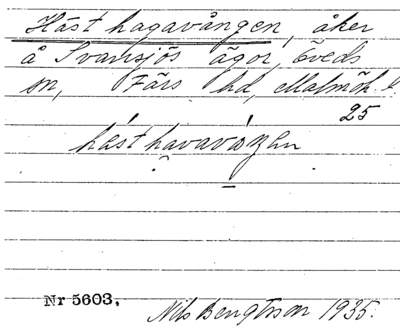 Hästhagavången, åker
å Svansjös ägor, Öveds
sn, Färs hd, Malmöh. l.
25
hásthavavàŋen
Nr 5603,
Nils Bengtsson 1935.